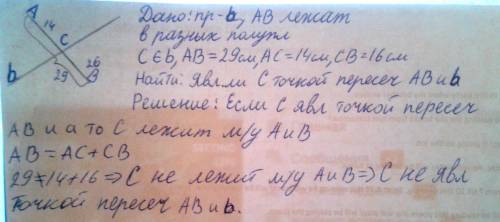 A
14
C
26
b
29
B
Дано: пр-b, AB лежат
в разных полупл
C∈b, AB=29см, AC=14см, CB=16см
Найти: Явл ли C точкой пересеч AB и b
Решение: Если C явл точкой пересеч
AB и a то C лежит м/у A и B
AB=AC+CB
29≠14+16 => C не лежит м/у A и B => C не явл
точкой пересеч AB и b.